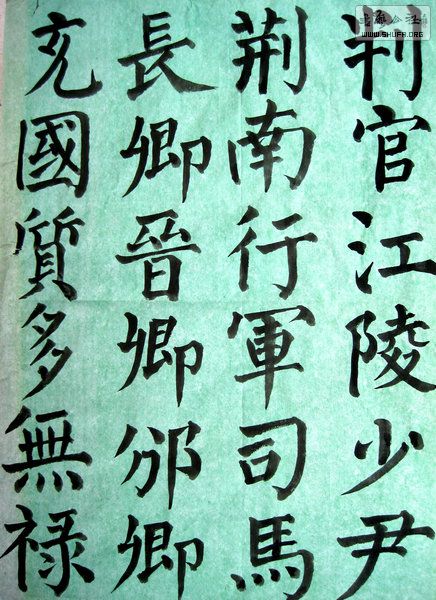 判官江陵少尹
荆南行軍司馬
長卿晉卿邠卿
充國質多無禄
WWW.SHUFA.ORG